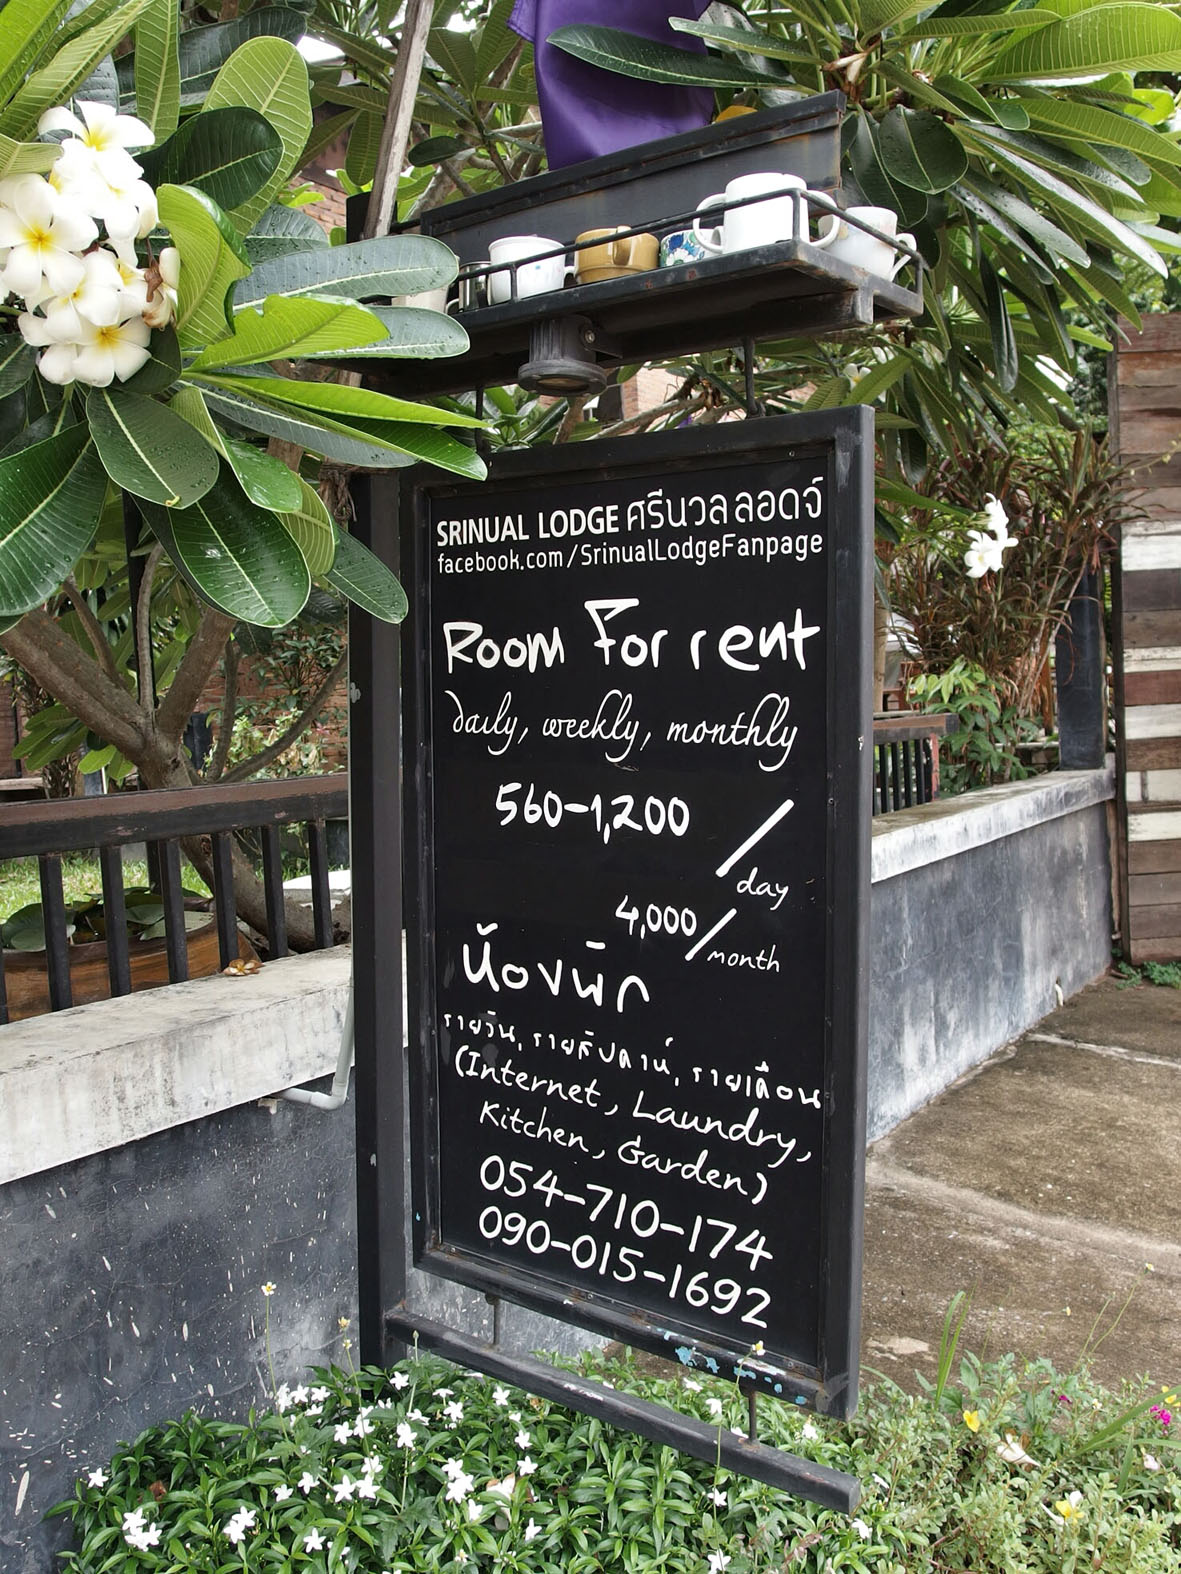 SRINUAL LODGE ศรีนวลลอดจ์
facebook.com/SrinualLodgeFanpage
Room For rent
daily, weekly, monthly
560-1,200 /day
4,000/month
ห้องพัก
รายวัน, รายสัปดาห์, รายเดือน
(Internet, Laundry,
Kitchen, Garden)
054-710-174
090-015-1692